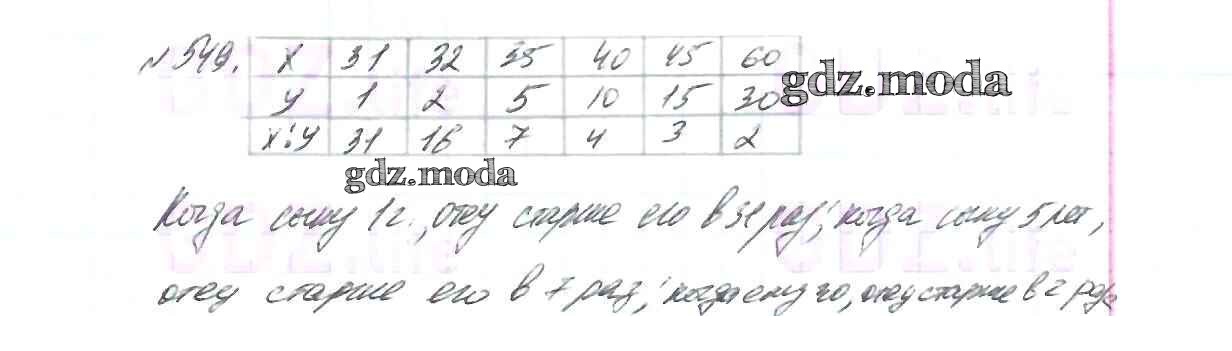 № 549. x 31 32 35 40 45 60
y 1 2 5 10 15 30
x:y 31 16 7 4 3 2
gdz.moda
gdz.moda
Когда сыну 1 г., отец старше его в 31 раз; когда сыну 5 лет,
отец старше его в 7 раз; когда ему 30, отец старше в 2 раза